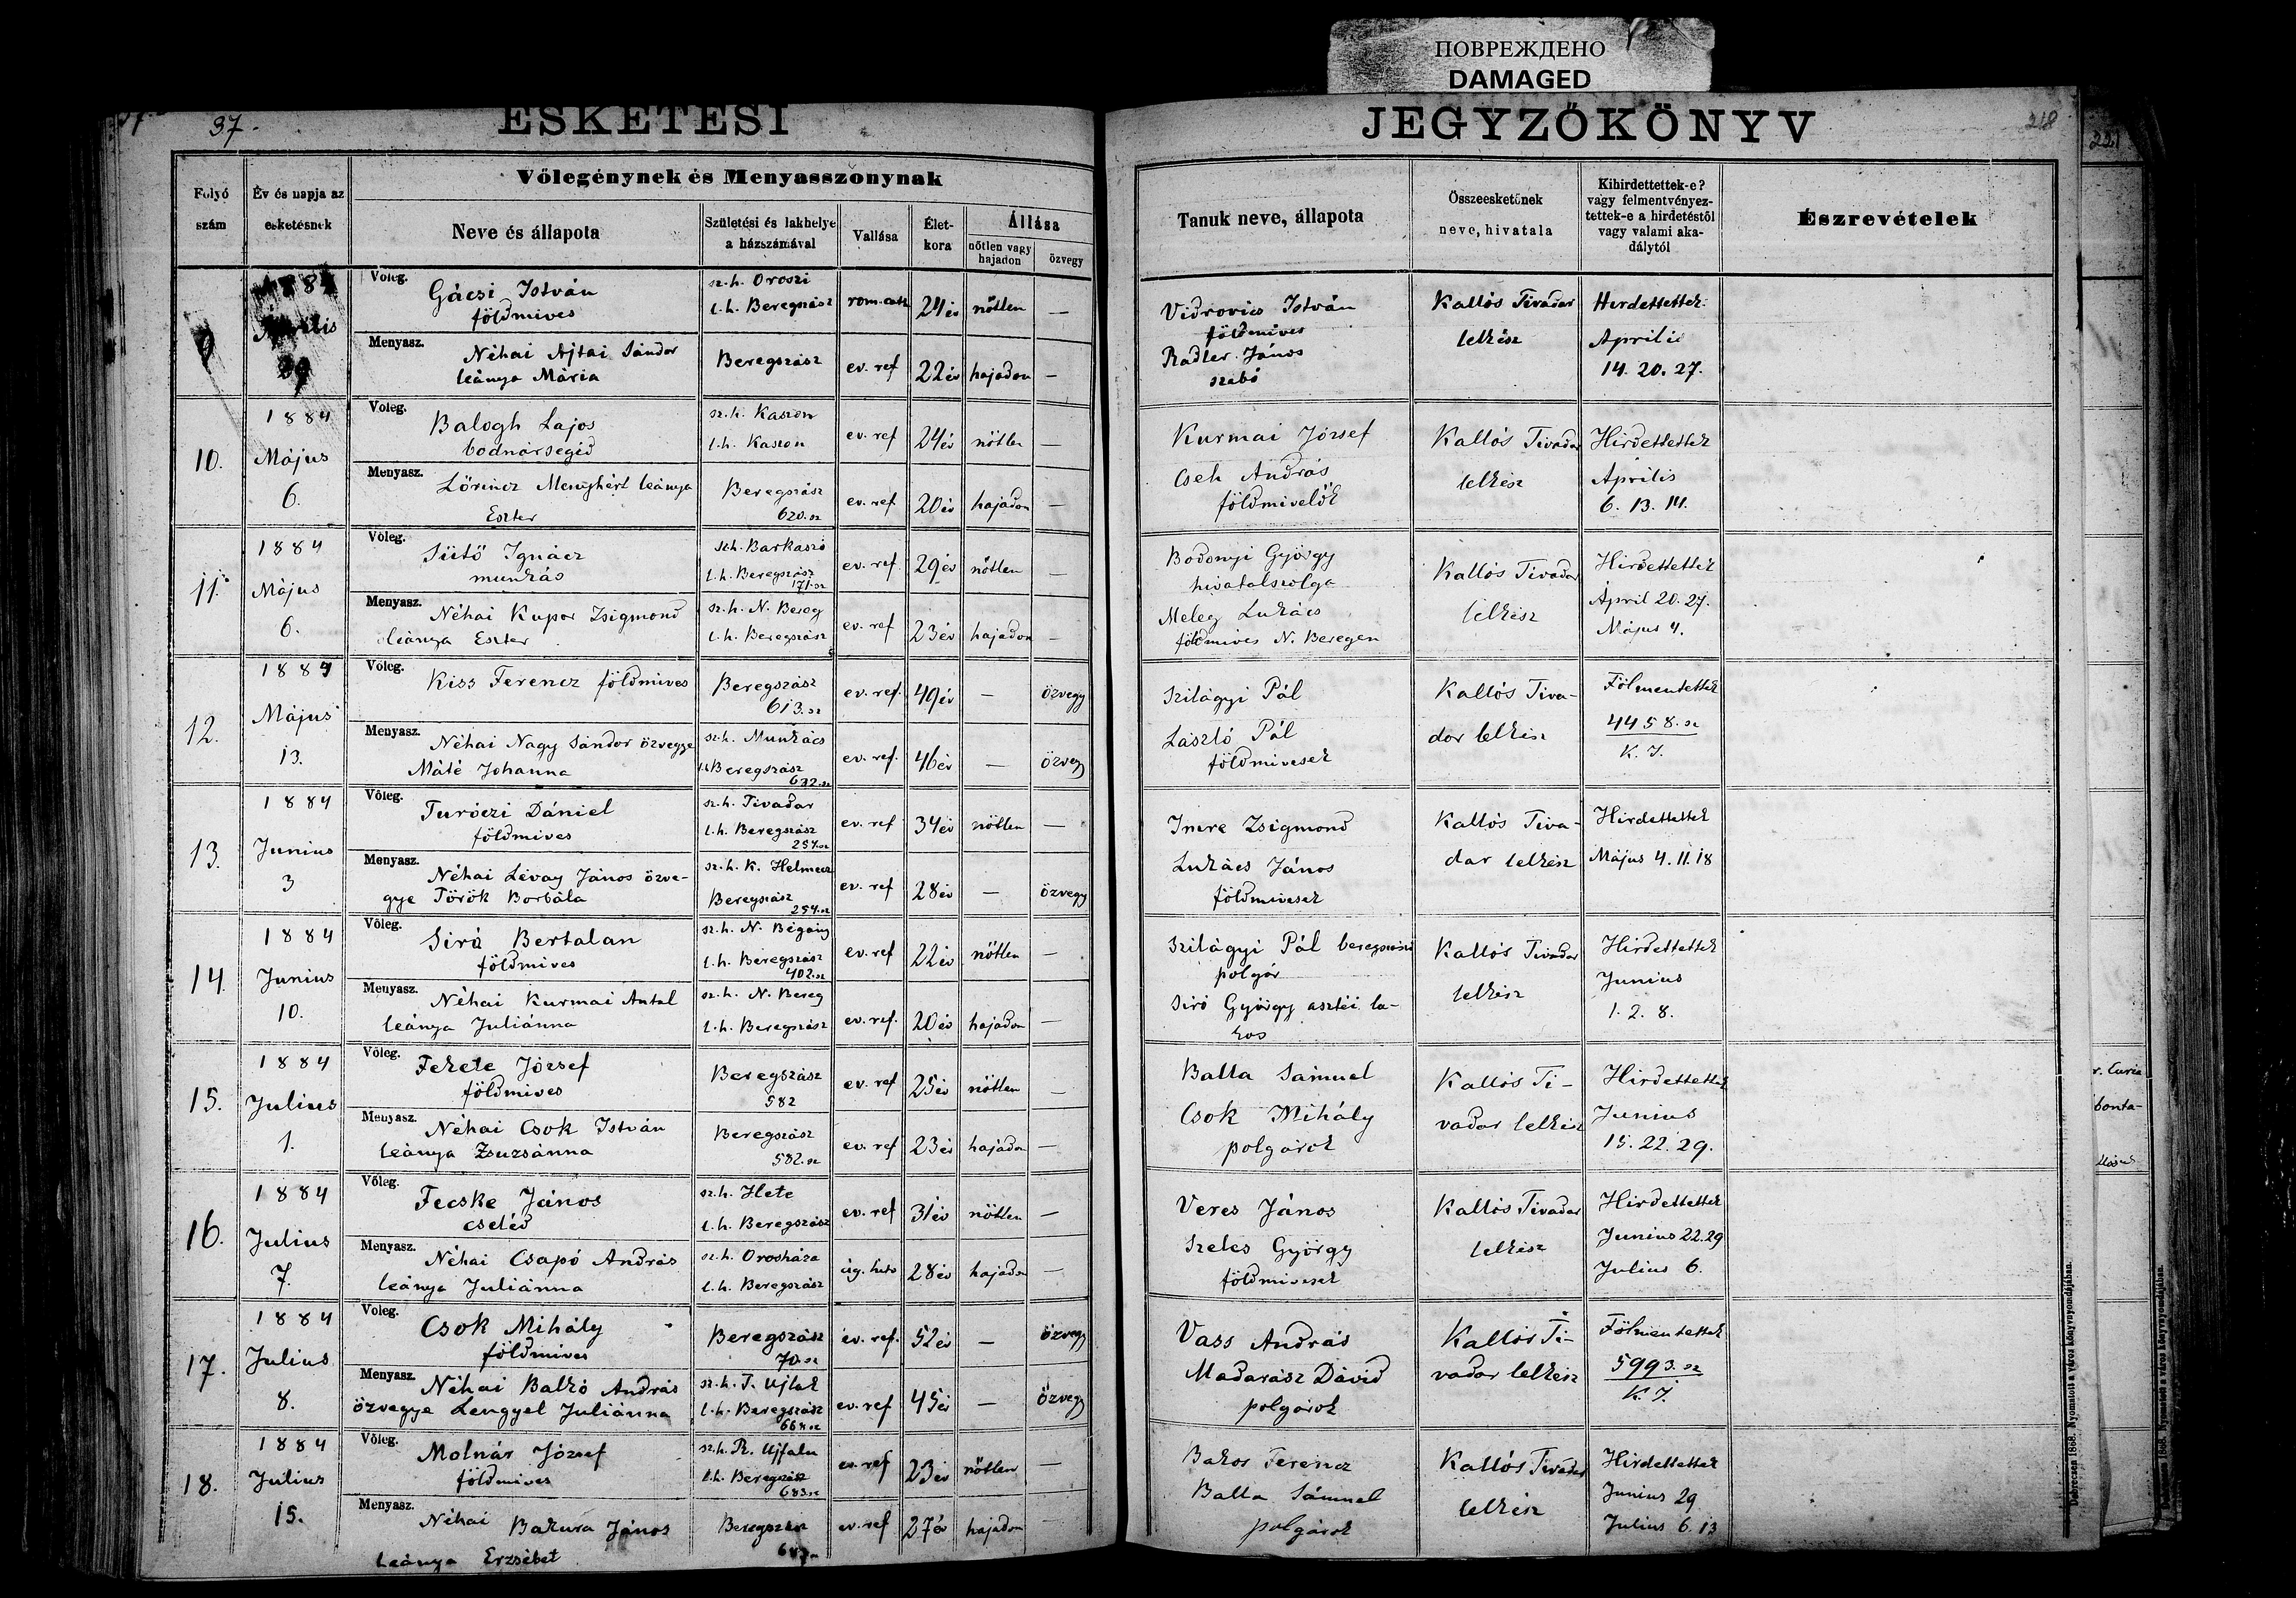 ПОВРЕЖДЕНО
DAMAGED
37.
ESKETÉSI
JEGYZŐKÖNYV
218
221
Folyó szám
Év és napja az esketésnek
Vőlegénynek és Menyasszonynak
Neve és állapota
Születési és lakhelye a házszámával
Vallása
Élet-kora
Állása
nőtlen vagy hajadon
özvegy
Tanuk neve, állapota
Összeesketőnek neve, hivatala
Kihirdettettek-e? vagy felmentvényez-tettek-e a hirdetéstől vagy valami aka-dálytól
Észrevételek
9
1884 Április 29
Vőleg. Gácsi István földmives
sz.h. Oroszi l.h. Beregszász
rom. cath 24 év nőtlen —
Menyasz. Néhai Ajtai Sándor leánya Mária
Beregszász
ev. ref 22 év hajadon —
Vidrovics István földmives
Radler János szabó
Kallós Tivadar lelkész
Hirdettettek Április 14. 20. 27.
10.
1884 Május 6.
Vőleg. Balogh Lajos bodnársegéd
sz.h. Kaszon l.h. Kaszon
ev. ref 24 év nőtlen —
Menyasz. Lőrincz Menyhért leánya Eszter
Beregszász 620. sz
ev. ref. 20 év hajadon —
Kurmai József
Cseh András földmivelők
Kallós Tivadar lelkész
Hirdettettek Április 6. 13. 14.
11.
1884 Május 6.
Vőleg. Sütő Ignácz munkás
sz.h. Barkaszó l.h. Beregszász 171. sz
ev. ref. 29 év nőtlen —
Menyasz. Néhai Kupor Zsigmond leánya Eszter
sz.h. N. Bereg l.h. Beregszász
ev. ref 23 év hajadon —
Bodonyi György hivatalszolga
Meleg Lukács földmives N. Beregen
Kallós Tivadar lelkész
Hirdettettek April 20. 27. Május 4.
12.
1884 Május 13.
Vőleg. Kiss Ferencz földmives
Beregszász 613. sz
ev. ref. 49 év — özvegy
Menyasz. Néhai Nagy Sándor özvegye Máté Johanna
sz.h. Munkács l.h. Beregszász 632. sz
ev. ref. 46 év — özvegy
Szilágyi Pál
László Pál földmivesek
Kallós Tiva-dar lelkész
Fölmentettek 4458. sz K. J.
13.
1884 Junius 3
Vőleg. Turóczi Dániel földmives
sz.h. Tivadar l.h. Beregszász 254. sz
ev. ref 34 év nőtlen —
Menyasz. Néhai Lévay János özve-gye Török Borbála
sz.h. K. Helmecz Beregszász 254. sz
ev. ref 28 év — özvegy
Imre Zsigmond
Lukács János földmivesek
Kallós Tiva-dar lelkész
Hirdettettek Május 4. 11. 18
14.
1884 Junius 10.
Vőleg. Siró Bertalan földmives
sz.h. N. Bégány l.h. Beregszász 402. sz
ev. ref 22 év nőtlen —
Menyasz. Néhai Kurmai Antal leánya Juliánna
sz.h. N. Bereg l.h. Beregszász
ev. ref. 20 év hajadon —
Szilágyi Pál beregszászi polgár
Siró György asztéi la-kos
Kallós Tivadar lelkész
Hirdettettek Junius 1. 2. 8.
15.
1884 Julius 1.
Vőleg. Fekete József földmives
Beregszász 582
ev. ref 25 év nőtlen —
Menyasz. Néhai Csok István leánya Zsuzsánna
Beregszász 582. sz
ev. ref 23 év hajadon —
Balla Sámuel
Csok Mihály polgárok
Kallós Ti-vadar lelkész
Hirdettettek Junius 15. 22. 29.
16.
1884 Julius 7.
Vőleg. Fecske János cseléd
sz.h. Hete l.h. Beregszász
ev. ref 31 év nőtlen —
Menyasz. Néhai Csapó András leánya Juliánna
sz.h. Orosháza l.h. Beregszász
ág. hitv 28 év hajadon —
Veres János
Szeles György földmivesek
Kallós Tivadar lelkész
Hirdettettek Junius 22. 29 Julius 6.
17.
1884 Julius 8.
Vőleg. Csok Mihály földmives
Beregszász 70. sz
ev. ref. 52 év — özvegy
Menyasz. Néhai Balkó András özvegye Lengyel Juliánna
sz.h. T. Ujlak l.h. Beregszász 664. sz
ev. ref 45 év — özvegy
Vass András
Madarász Dávid polgárok
Kallós Ti-vadar lelkész
Fölmentettek 5993. sz K. J.
18.
1884 Julius 15.
Vőleg. Molnár József földmives
sz.h. R. Ujfalu l.h. Beregszász 683. sz
ev. ref 23 év nőtlen —
Menyasz. Néhai Bakura János leánya Erzsébet
Beregszász
ev. ref 27 év hajadon —
Bakos Ferencz
Balla Sámuel polgárok
Kallós Tivadar lelkész
Hirdettettek Junius 29 Julius 6. 13
Debreczen 1868. Nyomatott a város könyvnyomdájában.
Debreczen 1868. Nyomatott a város könyvnyomdájában.